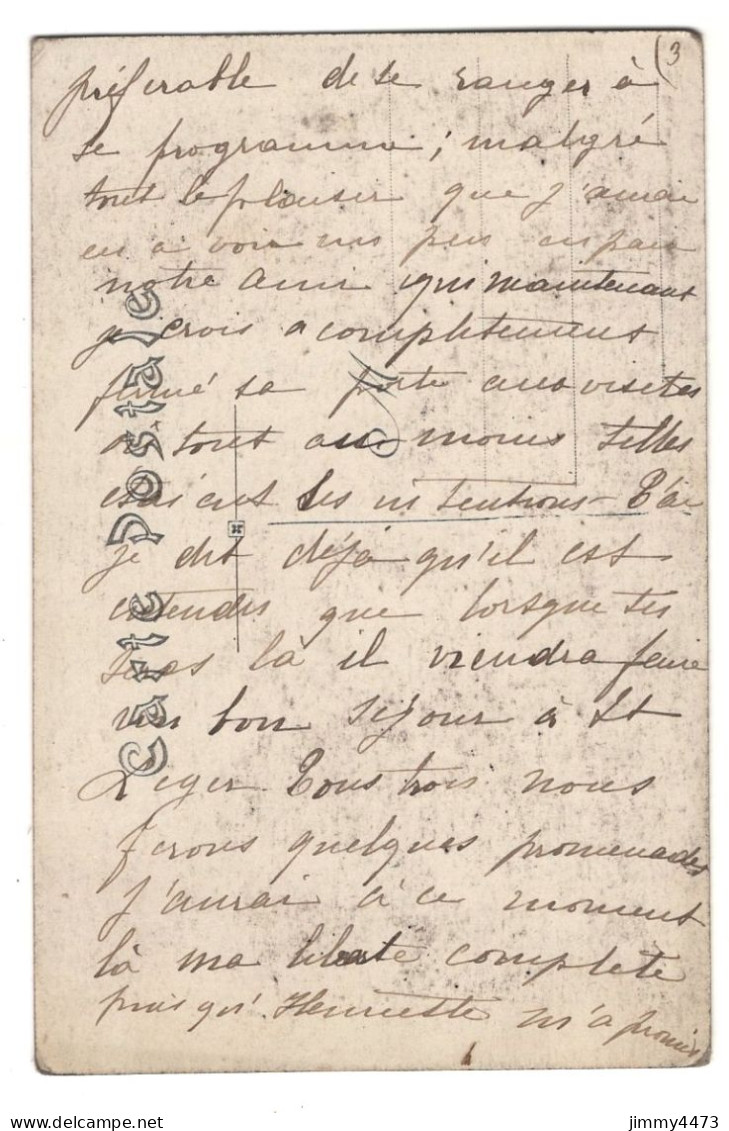 3
préferable de se ranger à
se programme ; malgré
tout le plaisir que j'aurai
eu a voir un peu
notre ami qui maintenant
je crois a completement
fermé sa porte aux visites
du tout au moins telles
étaient ses intentions - T'ai
je dit déjà qu'il est
entendu que lorsque tu
seras là il viendra faire
un bon séjour à St
Leger Tous trois nous
ferons quelques promenades
J'aurai à ce moment
là ma liberté complete
puis qu' Henriette m'a promis
Carte Postale
jimmy4473